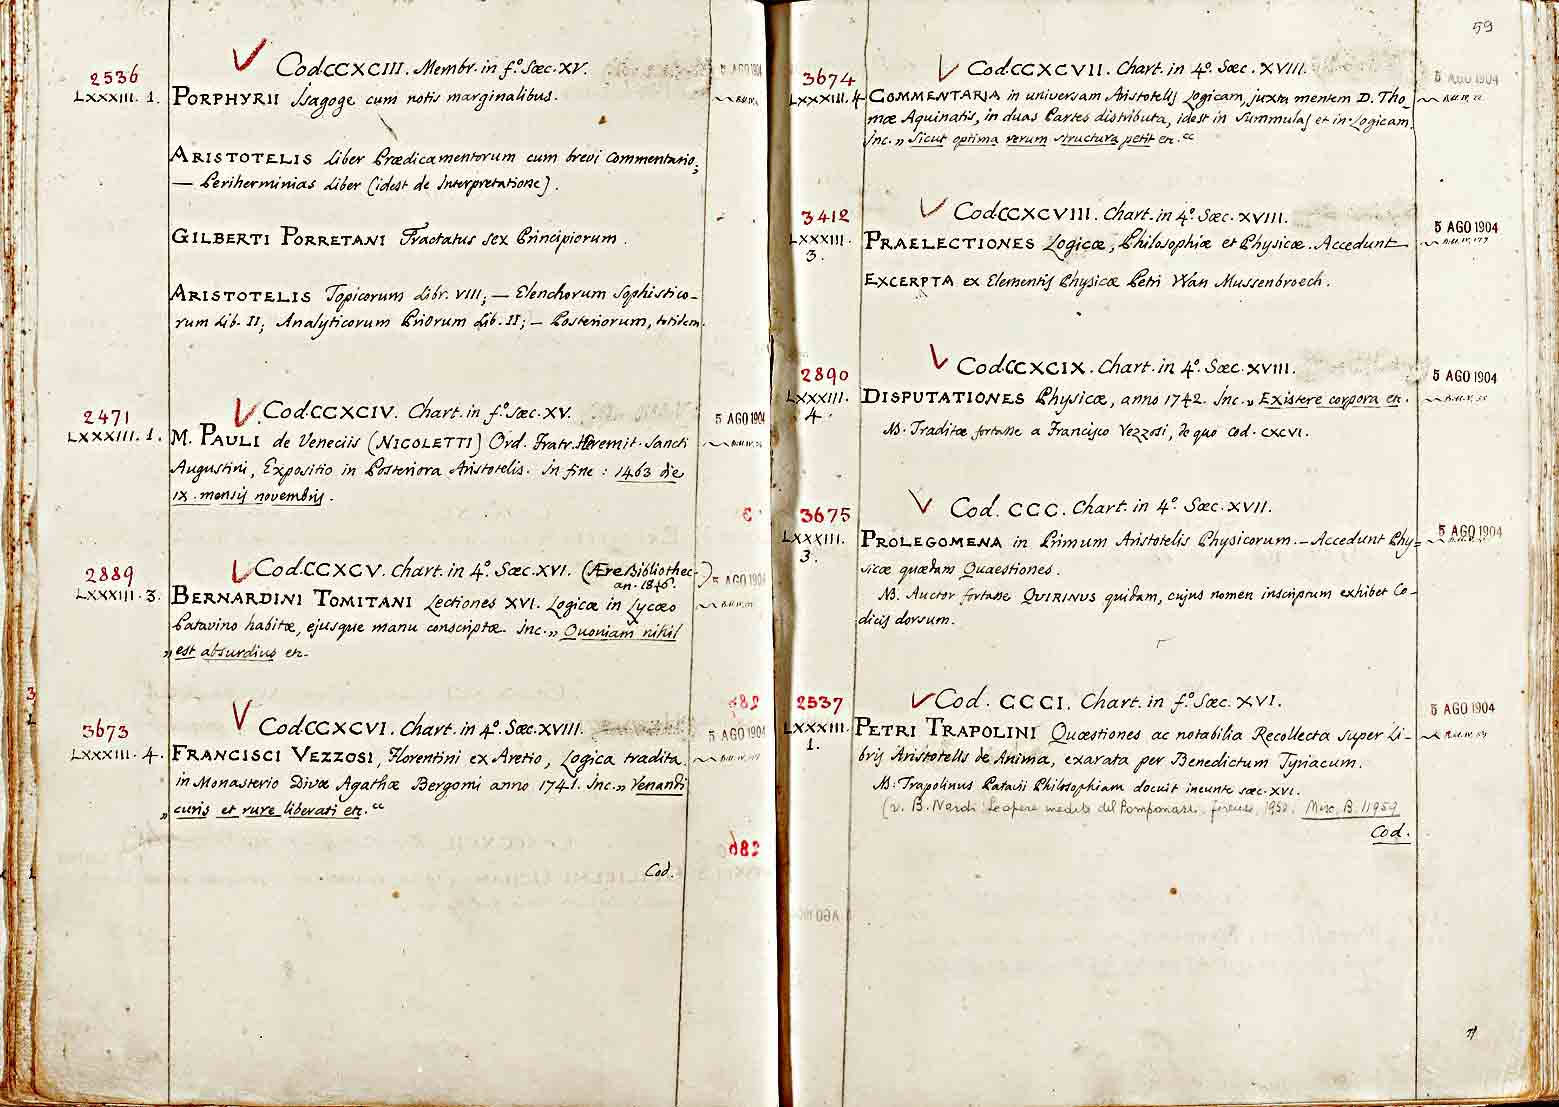 2536
LXXXIII. 1.
Cod. CCXCIII. Membr. in f.º Sæc. XV.
5 AGO 1904
PORPHYRII Isagoge cum notis marginalibus.
ARISTOTELIS Liber Prædicamentorum cum brevi Commentario;
— Periherminias Liber (idest de Interpretatione).
GILBERTI PORRETANI Tractatus sex Principiorum.
ARISTOTELIS Topicorum Libr. VIII; — Elenchorum Sophistico-
rum Lib. II; Analyticorum Priorum Lib. II; — Posteriorum, totidem.
2471
LXXXIII. 1.
Cod. CCXCIV. Chart. in f.º Sæc. XV.
5 AGO 1904
M. PAULI de Veneciis (NICOLETTI) Ord. Fratr. Heremit. Sancti
Augustini, Expositio in Posteriora Aristotelis. In fine: 1463 die
IX. mensis novembris.
2889
LXXXIII. 3.
Cod. CCXCV. Chart. in 4.º Sæc. XVI. (Ære Bibliothec.
an. 1846.)
5 AGO 1904
BERNARDINI TOMITANI Lectiones XVI. Logicæ in Lycæo
Patavino habitæ, ejusque manu conscriptæ. Inc. „ Quoniam nihil
„ est absurdius etc.
3673
LXXXIII. 4.
Cod. CCXCVI. Chart. in 4.º Sæc. XVIII.
5 AGO 1904
FRANCISCI VEZZOSI, Florentini ex Aretio, Logica tradita
in Monasterio Divæ Agathæ Bergomi anno 1741. Inc. „ Venandi
„ curis et rure liberati etc. “
Cod.
59
3674
LXXXIII. 4
Cod. CCXCVII. Chart. in 4.º Sæc. XVIII.
5 AGO 1904
COMMENTARIA in universam Aristotelis Logicam, juxta mentem D. Tho-
mæ Aquinatis, in duas Partes distributa, idest in Summulas et in Logicam.
Inc. „ Sicut optima rerum structura petit etc. “
3412
LXXXIII.
3.
Cod. CCXCVIII. Chart. in 4.º Sæc. XVIII.
5 AGO 1904
PRAELECTIONES Logicæ, Philosophiæ et Physicæ. Accedunt
EXCERPTA ex Elementis Physicæ Petri Wan Mussenbroech.
2890
LXXXIII.
4.
Cod. CCXCIX. Chart. in 4.º Sæc. XVIII.
5 AGO 1904
DISPUTATIONES Physicæ, anno 1742. Inc. „ Existere corpora etc.
NB. Traditæ fortasse a Francisco Vezzosi, de quo Cod. CXCVI.
3675
LXXXIII.
3.
Cod. CCC. Chart. in 4.º Sæc. XVII.
5 AGO 1904
PROLEGOMENA in Primum Aristotelis Physicorum. — Accedunt Phy-
sicæ quædam Quaestiones.
NB. Auctor fortasse QUIRINUS quidam, cujus nomen inscriptum exhibet Co-
dicis dorsum.
2537
LXXXIII.
1.
Cod. CCCI. Chart. in f.º Sæc. XVI.
5 AGO 1904
PETRI TRAPOLINI Quæstiones ac notabilia Recollecta super Li-
bris Aristotelis de Anima, exarata per Benedictum Tyriacum.
NB. Trapolinus Patavii Philosophiam docuit ineunte sæc. XVI.
(v. B. Nardi: Le opere inedite del Pomponazzi. Firenze, 1950. Misc. B. 11959
Cod.